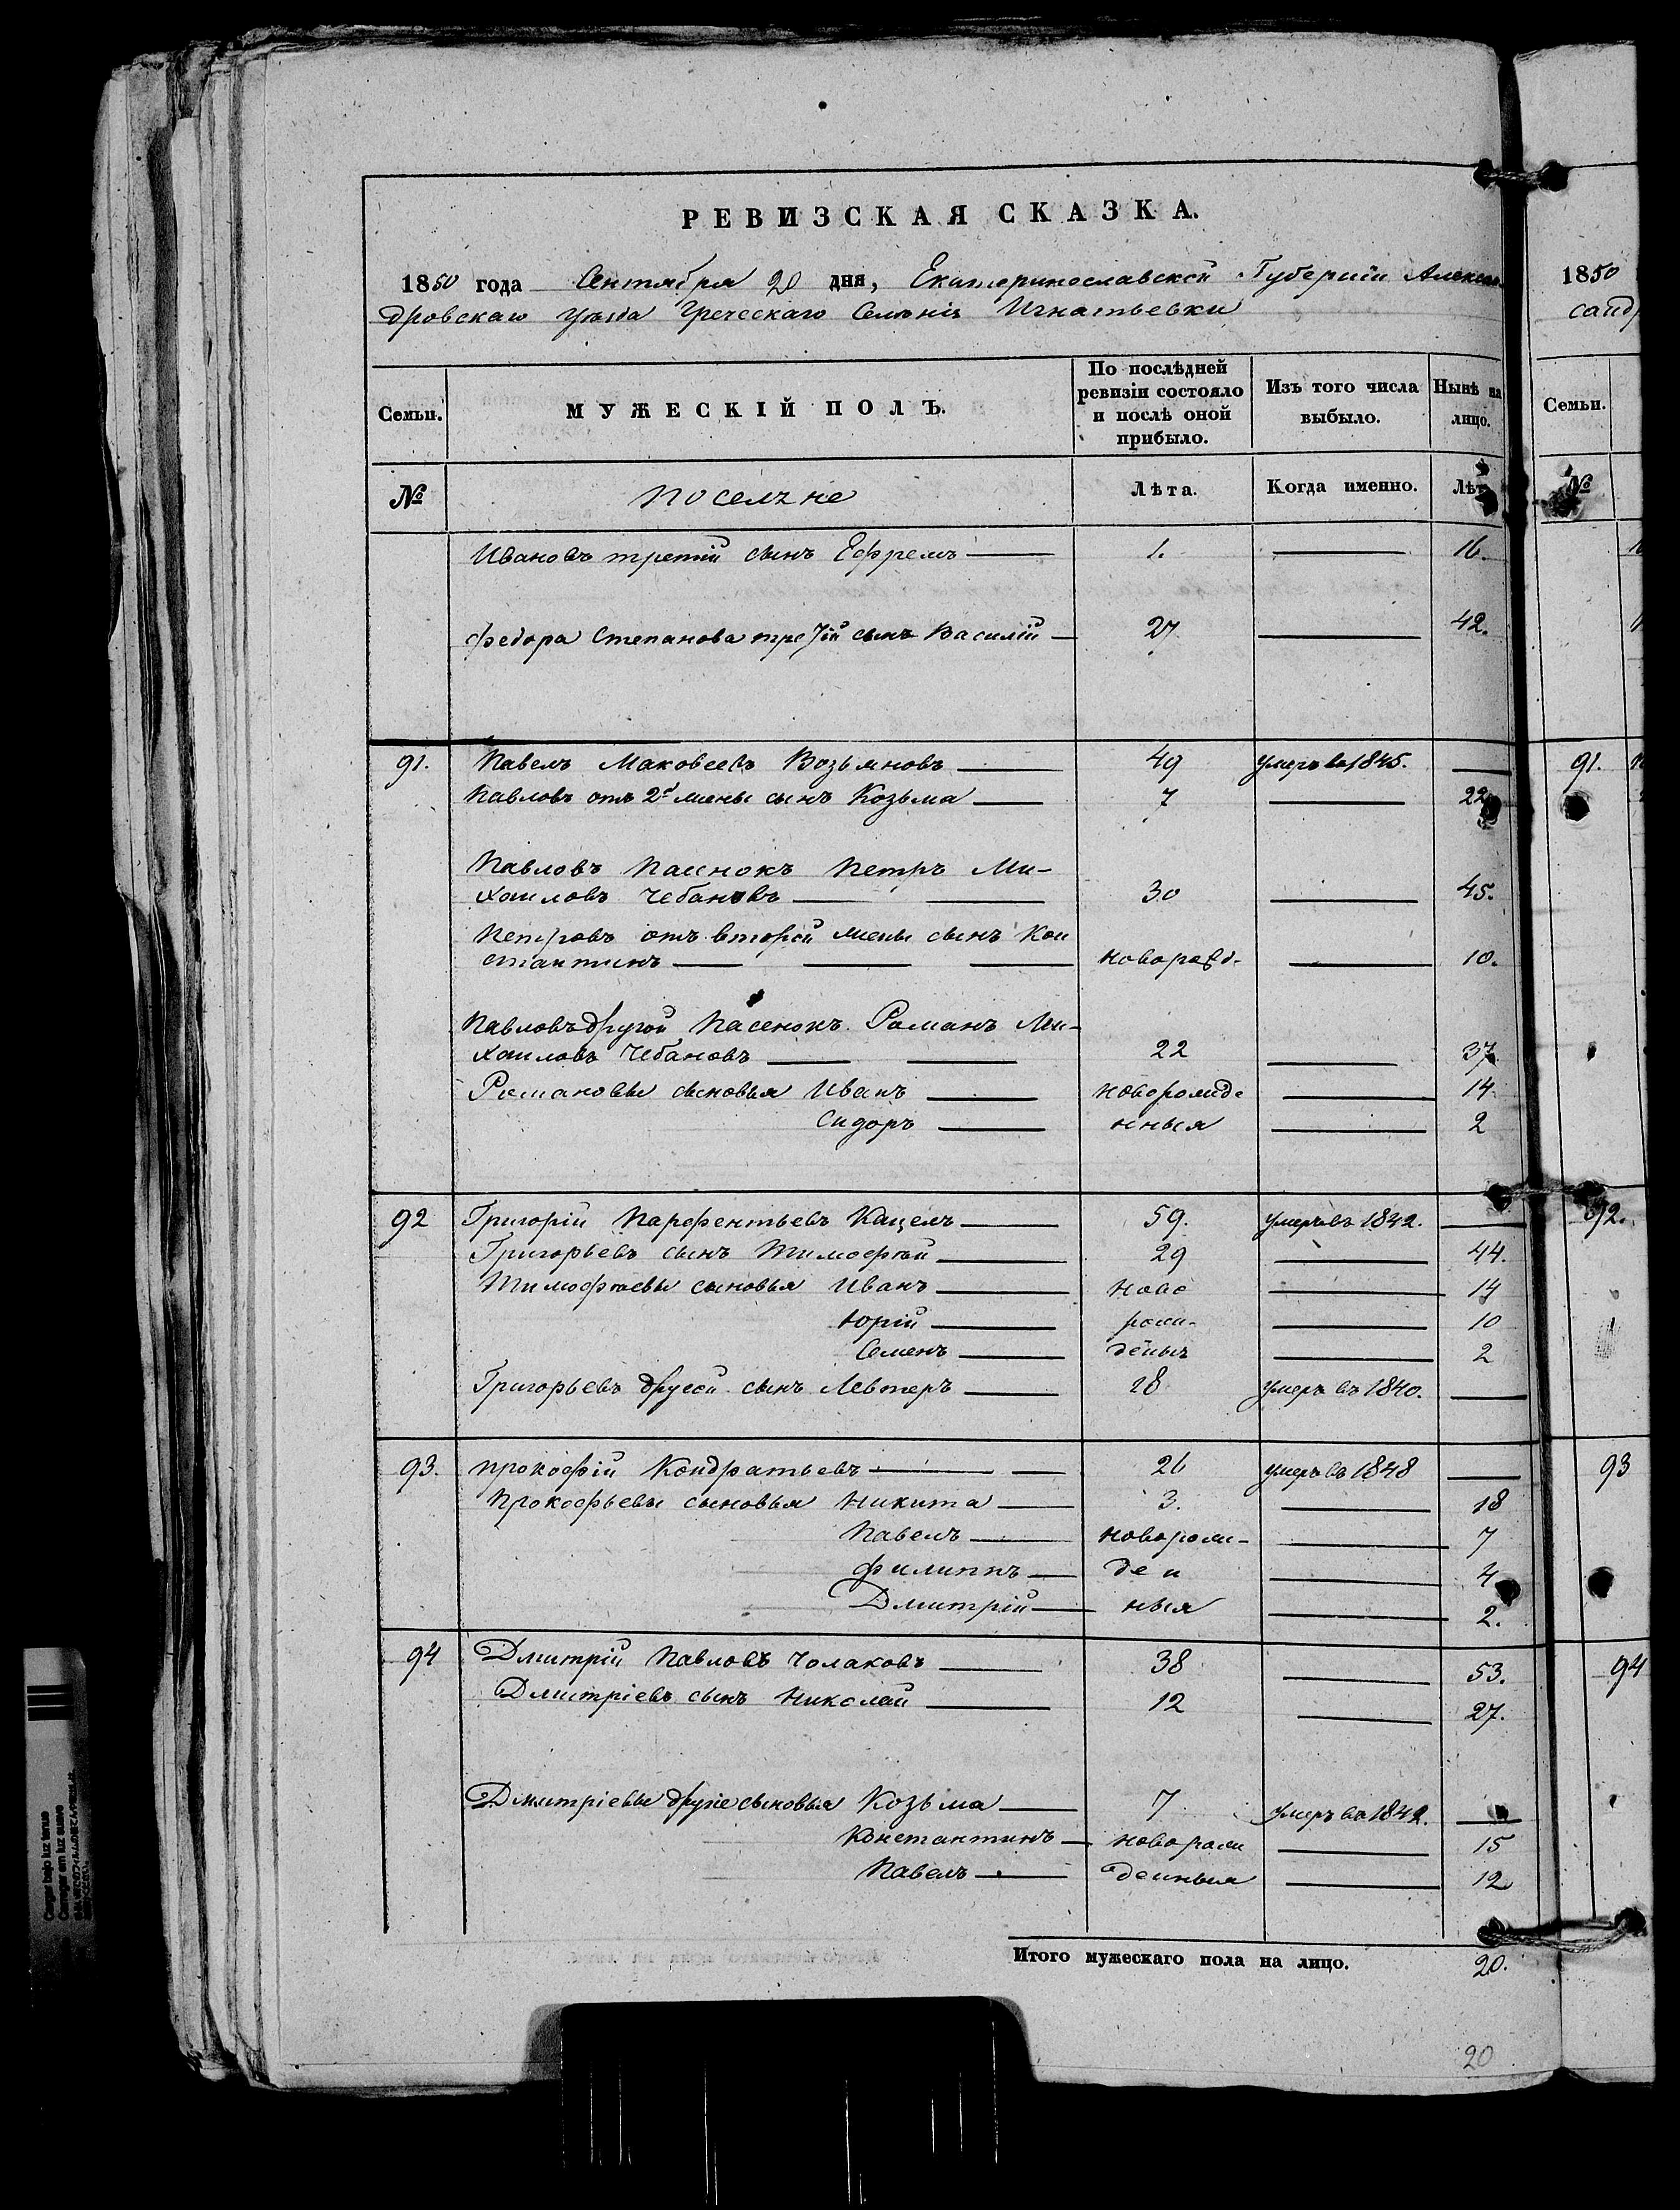 РЕВИЗСКАЯ СКАЗКА.
1850 года Сентября 20 дня, Екатеринославской Губерніи Алексан
дровскаго уѣзда Греческаго Селенія Игнатьевки
Семьи. МУЖЕСКІЙ ПОЛЪ. По послѣдней ревизіи состояло и послѣ оной прибыло. Изъ того числа выбыло. Нынѣ на лицо.
№ Поселяне Лѣта. Когда именно. Лѣт
Ивановъ третій сынъ Ефремъ 1. 16.
Федора Степанова третій сынъ Василій 27 42.
91. Павелъ Маковеевъ Возьяновъ 49 умеръ въ 1845.
Павловъ отъ 2й жены сынъ Козьма 7 22
Павловъ Паснокъ Петръ Ми-
хаиловъ Чебановъ 30 45.
Петровъ отъ второй жены сынъ Кон
стантинъ новорожд. 10.
Павловъ другой Пасенокъ Романъ Ми-
хаиловъ Чебановъ 22 37
Романовы сыновья Иванъ новорожде 14
Сидоръ нныя 2
92 Григорій Парфентьевъ Кацелъ 59. умеръ въ 1842.
Григорьевъ сынъ Тимофѣй 29 44.
Тимофѣевы сыновья Иванъ ново 14
Юрій рож- 10
Семенъ деныя 2
Григорьевъ другой сынъ Левтеръ 28 умеръ въ 1840.
93. Прокофій Кондратьевъ 26 умеръ въ 1848
Прокофьевы сыновья Никита 3. 18
Павелъ новорож- 7
Филиппъ ден 4
Дмитрій ныя 2.
94 Дмитрій Павловъ Чолаковъ 38 53.
Дмитріевъ сынъ Николай 12 27.
Дмитріевы другіе сыновья Козьма 7 умеръ въ 1842.
Константинъ новорож 15
Павелъ денныя 12
Итого мужескаго пола на лицо. 20.
20
1850
санд
Семьи.
№
91.
92.
93
94